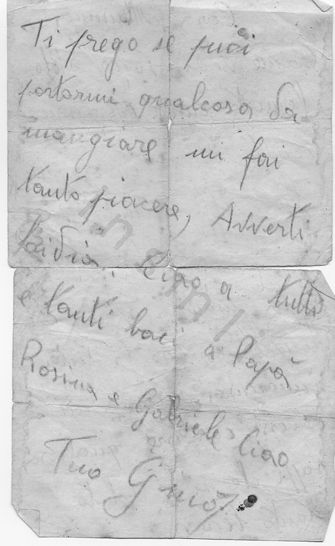 Ti prego se puoi
portarmi qualcosa da
mangiare mi fai
tanto piacere, Avverti
Lidia. Ciao a tutti
e tanti baci a Papà
Rosina e Gabriele Ciao
Tuo Gino